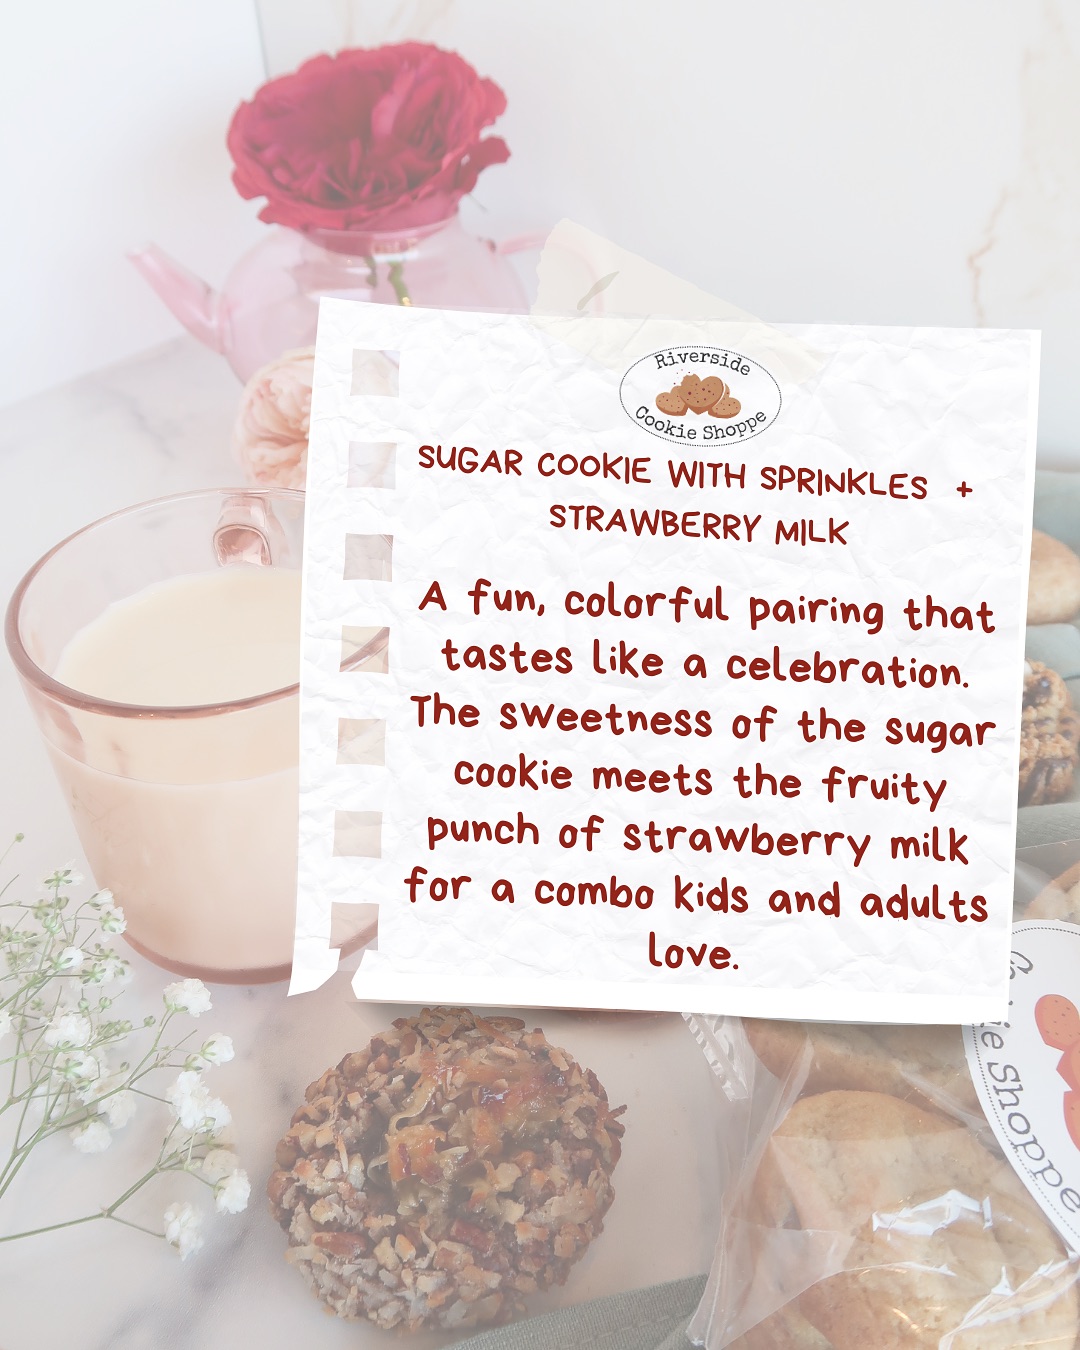 Riverside
Cookie Shoppe
SUGAR COOKIE WITH SPRINKLES +
STRAWBERRY MILK
A fun, colorful pairing that
tastes like a celebration.
The sweetness of the sugar
cookie meets the fruity
punch of strawberry milk
for a combo kids and adults
love.
Shoppe